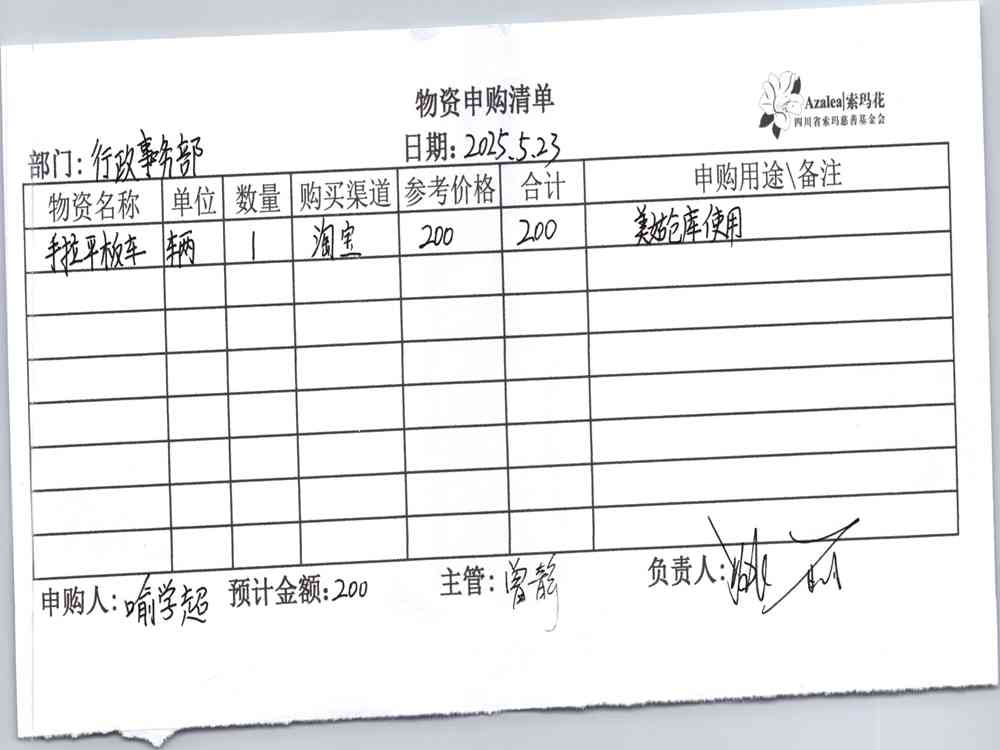 物资申购清单
Azalea|索玛花
四川省索玛慈善基金会
部门：行政事务部 日期：2025.5.23
物资名称 单位 数量 购买渠道 参考价格 合计 申购用途\备注
手拉平板车 辆 1 淘宝 200 200 美姑仓库使用
申购人：喻学超 预计金额：200 主管：曾静 负责人：